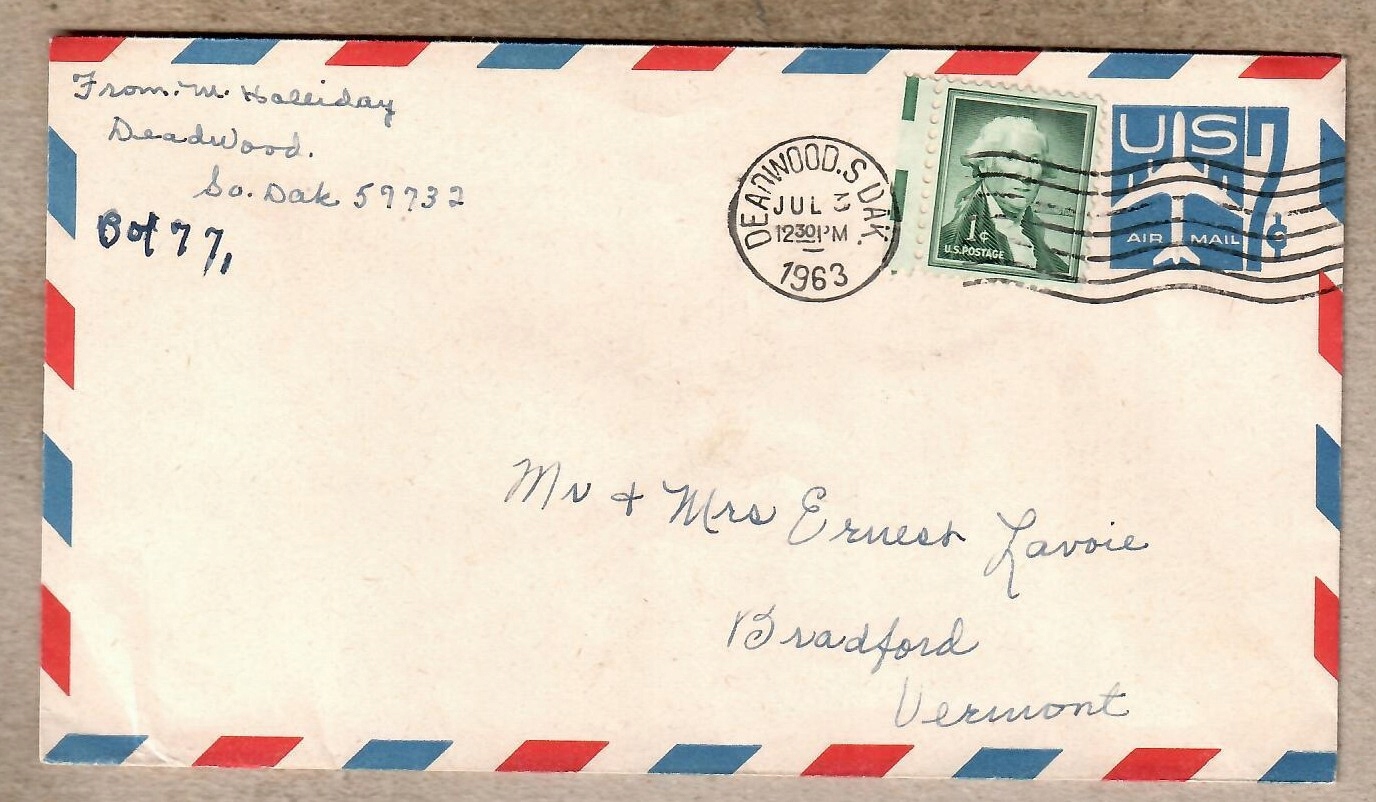 From. M. Halliday
Deadwood.
So. Dak 59732
Box 77,
DEADWOOD. S. DAK.
JUL 3
12 30 PM
1963
1¢
U.S. POSTAGE
US 7¢
AIR MAIL
Mr & Mrs Ernest Lavoie
Bradford
Vermont